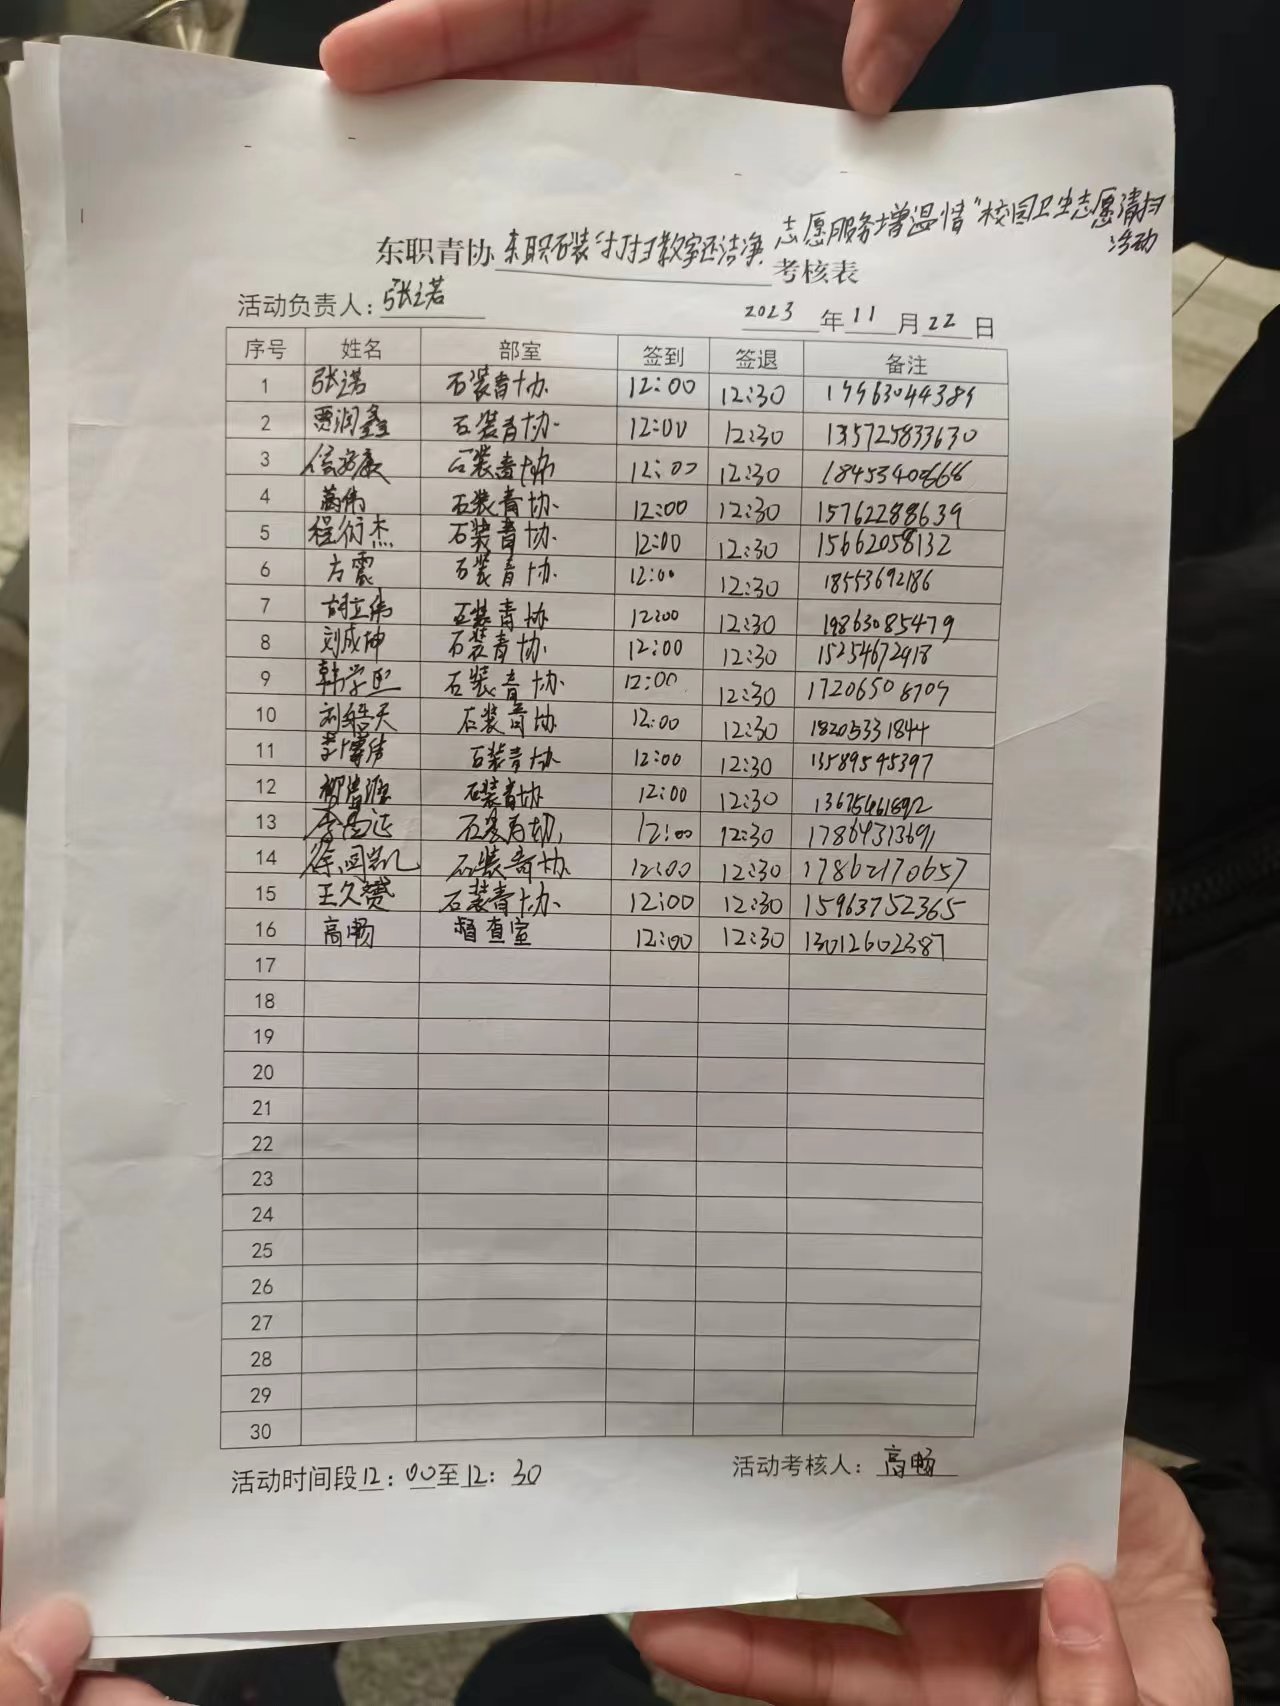 志愿服务增温情"校园卫生志愿清扫
活动
东职青协东职石装"打扫教室还洁净考核表
活动负责人:张诺 2023年11月22日
序号 姓名 部室 签到 签退 备注
1 张诺 石装青协 12:00 12:30
2 贾润鑫 石装青协 12:00 12:30 135725833630
3 石装青协 12:00 12:30
4 石装青协 12:00 12:30 15762288639
5 程衍杰 石装青协 12:00 12:30 15662058132
6 方震 石装青协 12:00 12:30 18553692186
7 胡立伟 石装青协 12:00 12:30 19863085479
8 刘成坤 石装青协 12:00 12:30 15254672918
9 韩学熙 石装青协 12:00 12:30 17206508709
10 刘皓天 石装青协 12:00 12:30 18205331844
11 李博伟 石装青协 12:00 12:30 13589545397
12 石装青协 12:00 12:30 13675461892
13 石装青协 12:00 12:30 17864313691
14 徐闯凯 石装青协 12:00 12:30 17862170657
15 王久赟 石装青协 12:00 12:30 15963752365
16 高畅 督查室 12:00 12:30 13012602387
17
18
19
20
21
22
23
24
25
26
27
28
29
30
活动时间段12:00至12:30 活动考核人:高畅